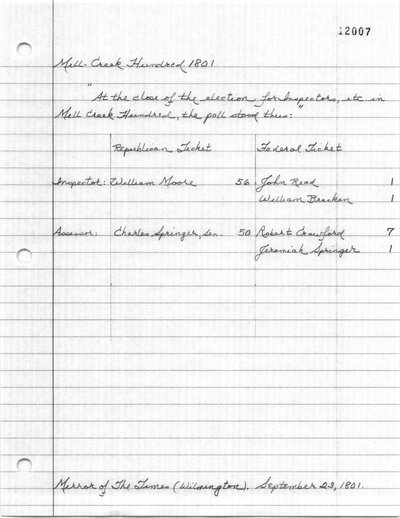 12007
Mill Creek Hundred 1801
"At the close of the election for Inspectors, etc. in
Mill Creek Hundred, the poll stood thus:"
Republican Ticket Federal Ticket
Inspector: William Moore 56 John Read 1
William Bracken 1
Assessor: Charles Springer, Sen. 50 Robert Crawford 7
Jeremiah Springer 1
Mirror of The Times (Wilmington). September 23, 1801.